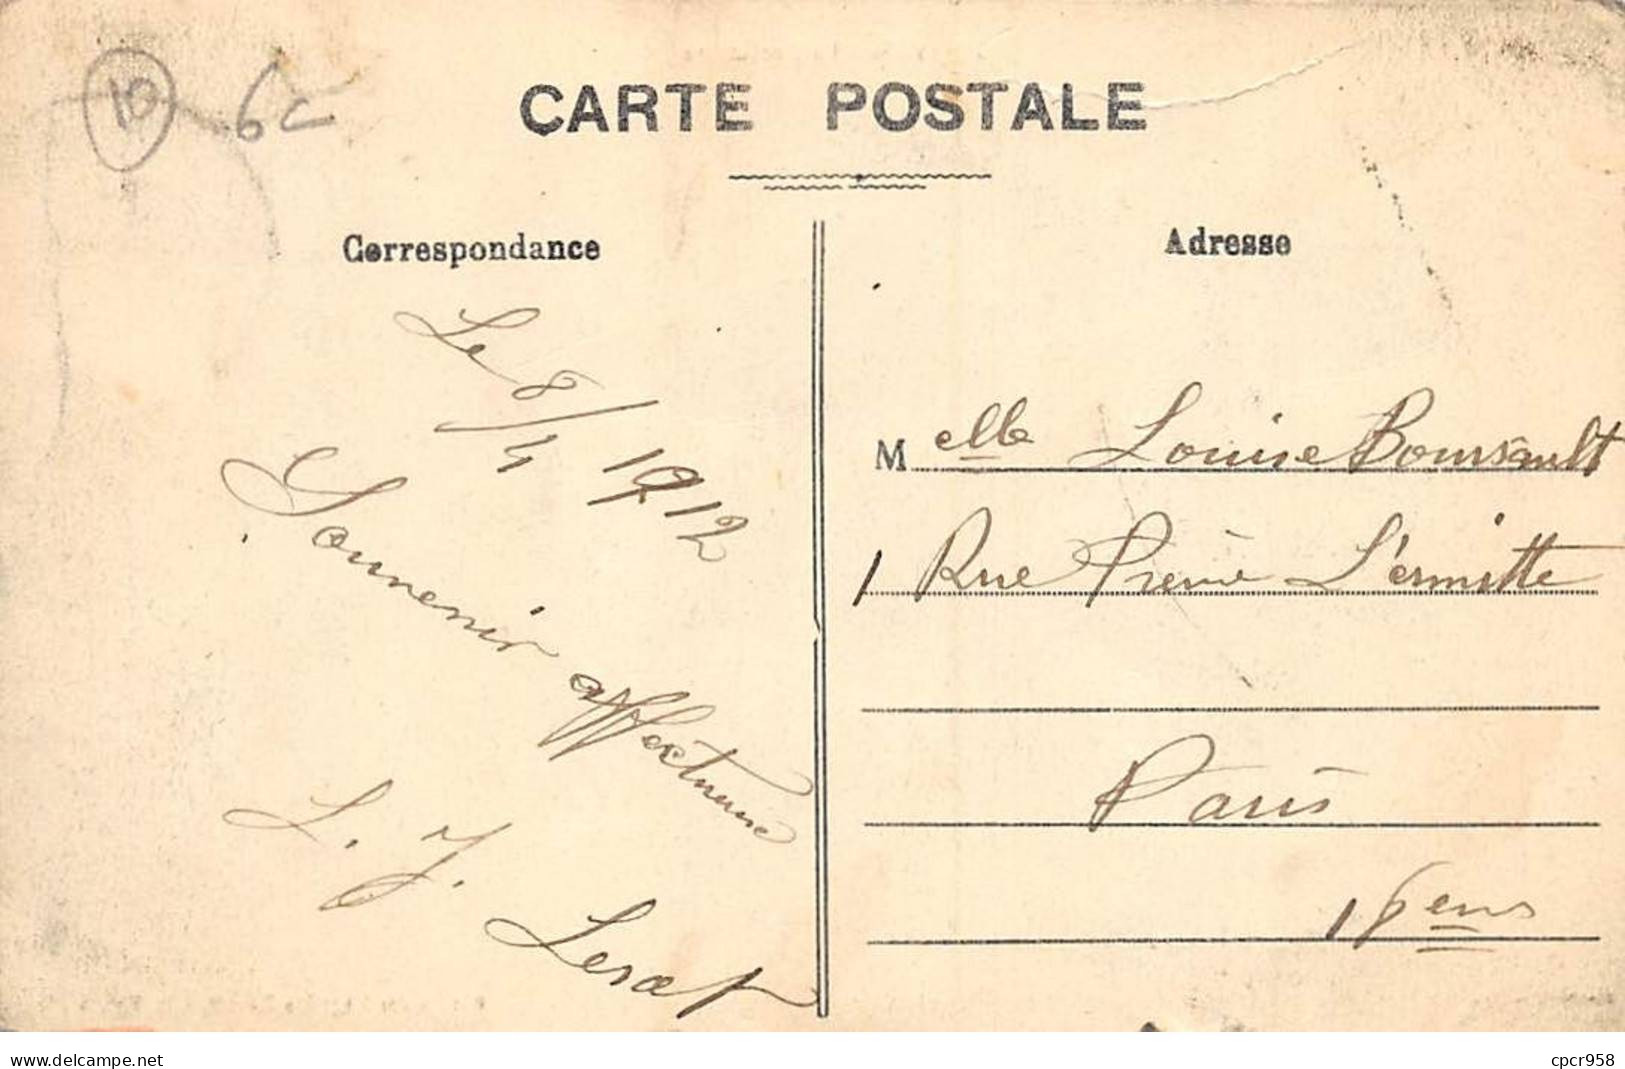 10 6c
CARTE POSTALE
Correspondance
Le 8/4 1912
Souvenir affectueuse
L. J. Lerat
Adresse
Melle Louise Boursault
1 Rue Preme L'ermitte
Paris
16ems
www.delcampe.net
cpcr958